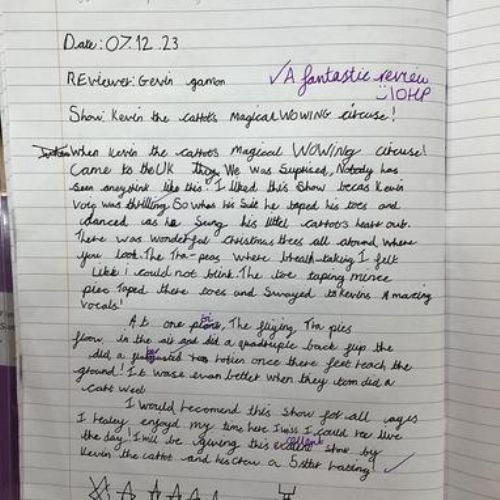 Date: 07.12.23
REviewer: Gevin gamon
✓A fantastic review
10HP
Show: Kevin the carrots Magical WOWING circuse!
When kevin the carrots magical WOWing circuse!
Came to the UK They We was Suprised, Nobody has
seen aneythink like this. I liked this Show becas Kevin
Voig was thrilling So whas his Suit he taped his toes and
danced as he Sung his littel carrots heart out.
There was wonderful christmas trees all around where
you look. The Tra-peas where breath-taking I felt
Like I could not blink. The toe taping mince
pies Taped there toes and Swayed to kevins Amazing
vocals!
At one The fliging Tra pies
flown in the air and did a quadruple back flip the
did a rotien once there feet reach the
ground! It wase evan better when they tom did a
cart weel
I would recomend this show for all ages
I realey enjoyd my time here I wiss I could ree live
the day! I will be giveing this show by
Kevin the carrot and his crew a 5 star rateing! ✓